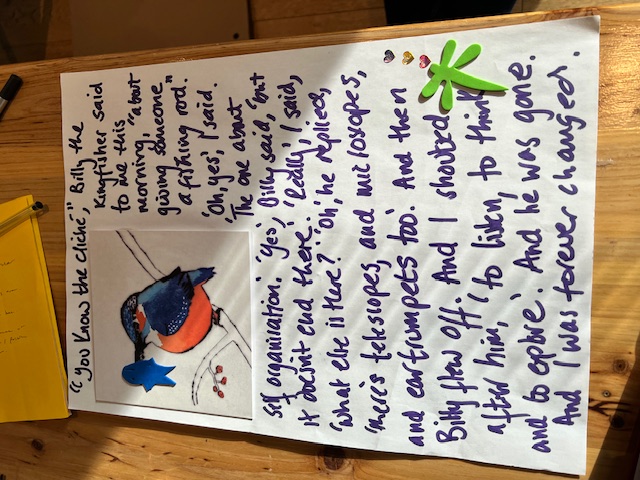 "You know the cliché," Billy the
Kingfisher said
to me this
morning, "about
giving someone
a fishing rod."
'Oh, yes,' I said.
'The one about
self organisation.' 'Yes,' Billy said, 'but
it doesn't end there.' 'Really,' I said,
'What else is there?' 'Oh,' he replied,
'there's telescopes, and microscopes,
and ear trumpets too.' And then
Billy flew off. And I shouted
after him, to listen, to think
and to explore. And he was gone.
And I was forever changed.